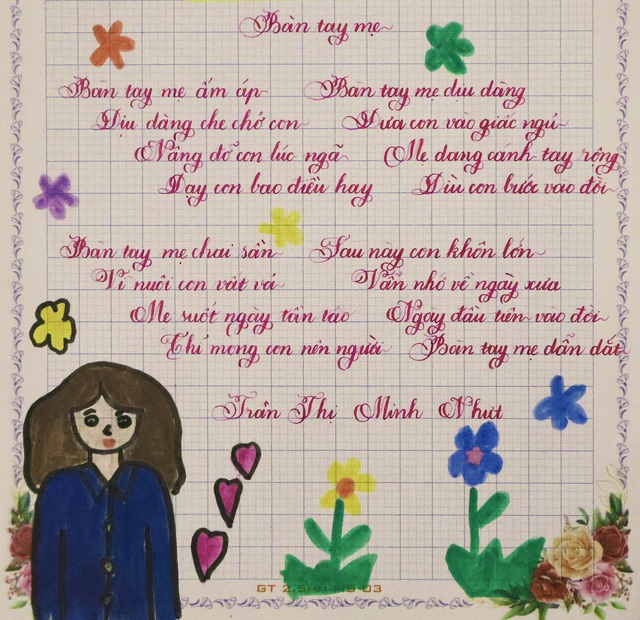 Bàn tay mẹ
Bàn tay mẹ ấm áp
Dịu dàng che chở con
Nâng đỡ con lúc ngã
Dạy con bao điều hay
Bàn tay mẹ dịu dàng
Đưa con vào giấc ngủ
Mẹ dang cánh tay rộng
Dìu con bước vào đời
Bàn tay mẹ chai sần
Vì nuôi con vất vả
Mẹ suốt ngày tần tảo
Chỉ mong con nên người
Sau này con khôn lớn
Vẫn nhớ về ngày xưa
Ngày đầu tiên vào đời
Bàn tay mẹ dẫn dắt
Trần Thị Minh Nhựt
GT 2.5MM MS 03